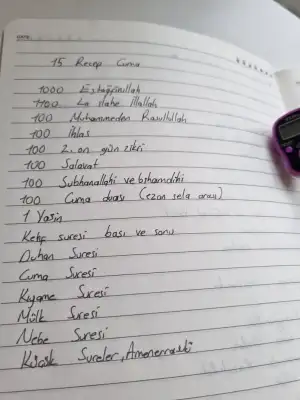 DATE:
15 Recep Cuma
1000 Estağfirullah
1100 La ilahe illallah
100 Muhammeden Rasullullah
100 İhlas
100 2. on gün zikri
100 Salavat
100 Subhanallahi ve bihamdihi
100 Cuma duası (ezan sela arası)
1 Yasin
Kehf suresi başı ve sonu
Duhan Suresi
Cuma Suresi
Kıyame Suresi
Mülk Suresi
Nebe Suresi
Küçük Sureler, Amenerrasulü